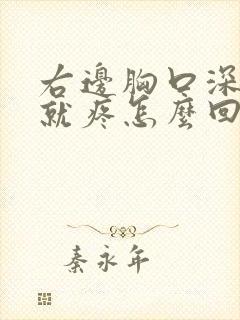 右邊胸口深
就疼怎麼回
秦永年